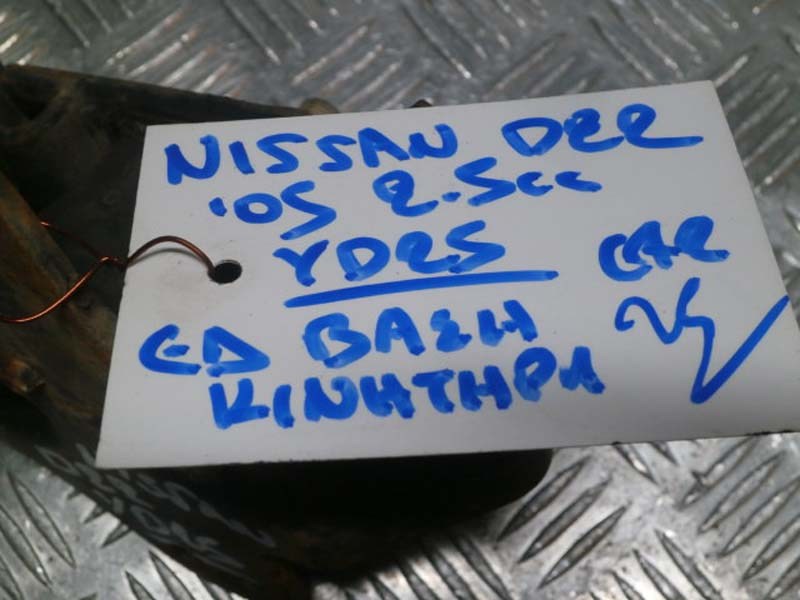 NISSAN D22
'05 2.5cc
YD25
ΕΔ ΒΑΣΗ
ΚΙΝΗΤΗΡΑ